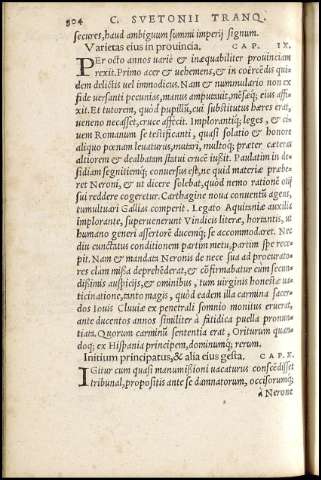 504 C. SVETONII TRANQ.
secures, haud ambiguum summi imperij signum.
Varietas eius in prouincia. CAP. IX.
PEr octo annos uariè & inæquabiliter prouinciam
rexit. Primo acer & uehemens, & in coërcēdis qui-
dem delictis uel immodicus. Nam & nummulario non ex
fide uersanti pecunias, manus amputauit, mēsæq; eius affi-
xit. Et tutorem, quòd pupillū, cui substitutus hæres erat,
ueneno necasset, cruce affecit. Implorantiq; leges, & ci-
uem Romanum se testificanti, quasi solatio & honore
aliquo pœnam leuaturus, mutari, multoq; præter cæteras
altiorem & dealbatam statui crucē iussit. Paulatim in de-
sidiam segnitiemq; conuersus est, ne quid materiæ præbe-
ret Neroni, & ut dicere solebat, quòd nemo rationē otij
sui reddere cogeretur. Carthagine noua conuentū agens,
tumultuari Gallias comperit. Legato Aquitaniæ auxilia
implorante, superuenerunt Vindicis literæ, hortantis, ut
humano generi assertorē ducemq; se accommodaret. Nec
diu cunctatus conditionem partim metu, partim spe rece-
pit. Nam & mandata Neronis de nece sua ad procurato-
res clam missa deprehēderat, & cōfirmabatur cum secun-
dissimis auspicijs, & ominibus, tum uirginis honestæ ua-
ticinatione, tanto magis, quòd eadem illa carmina sacer-
dos Iouis Cluniæ ex penetrali somnio monitus eruerat,
ante ducentos annos similiter à fatidica puella pronun-
tiata. Quorum carminū sententia erat, Oriturum quan-
doq; ex Hispania principem, dominumq; rerum.
Initium principatus, & alia eius gesta. CAP. X.
IGitur cum quasi manumissioni uacaturus conscēdisset
tribunal, propositis ante se damnatorum, occisorumq;
à Nerone